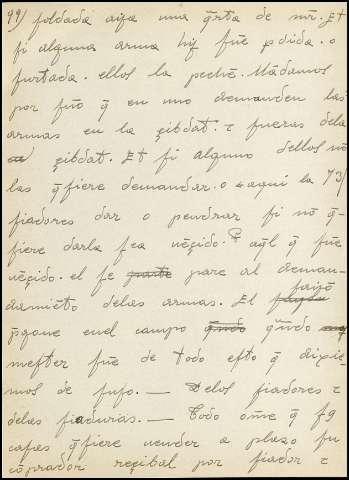 99) foldada aifa una q̄rta de mr̄. Et
fi alguna arma hy fue p̄dida. o
furtada. ellos la pechē. Mādamos
por fuō q̄ en uno demanden las
armas en la çibdat. τ fueras dela
çibdat. Et fi alguno dellos nō
las q̄fiere demandar. o aqui la 73/
fiadores dar o pendrar fi nō q̄-
fiere darla fea uēçido. E aq̄l q̄ fue
uēçido. el fe pare al deman-
damiēto delas armas. El juyzo
p̄gone enel campo q̄ndo
mefter fue de todo efto q̄ dixie-
mos de fufo. — Delos fiadores τ
delas fiaduras. — Todo om̄e q̄ fg
cafas q̄fiere uender a plazo fu
cōprador reçibal por fiador τ